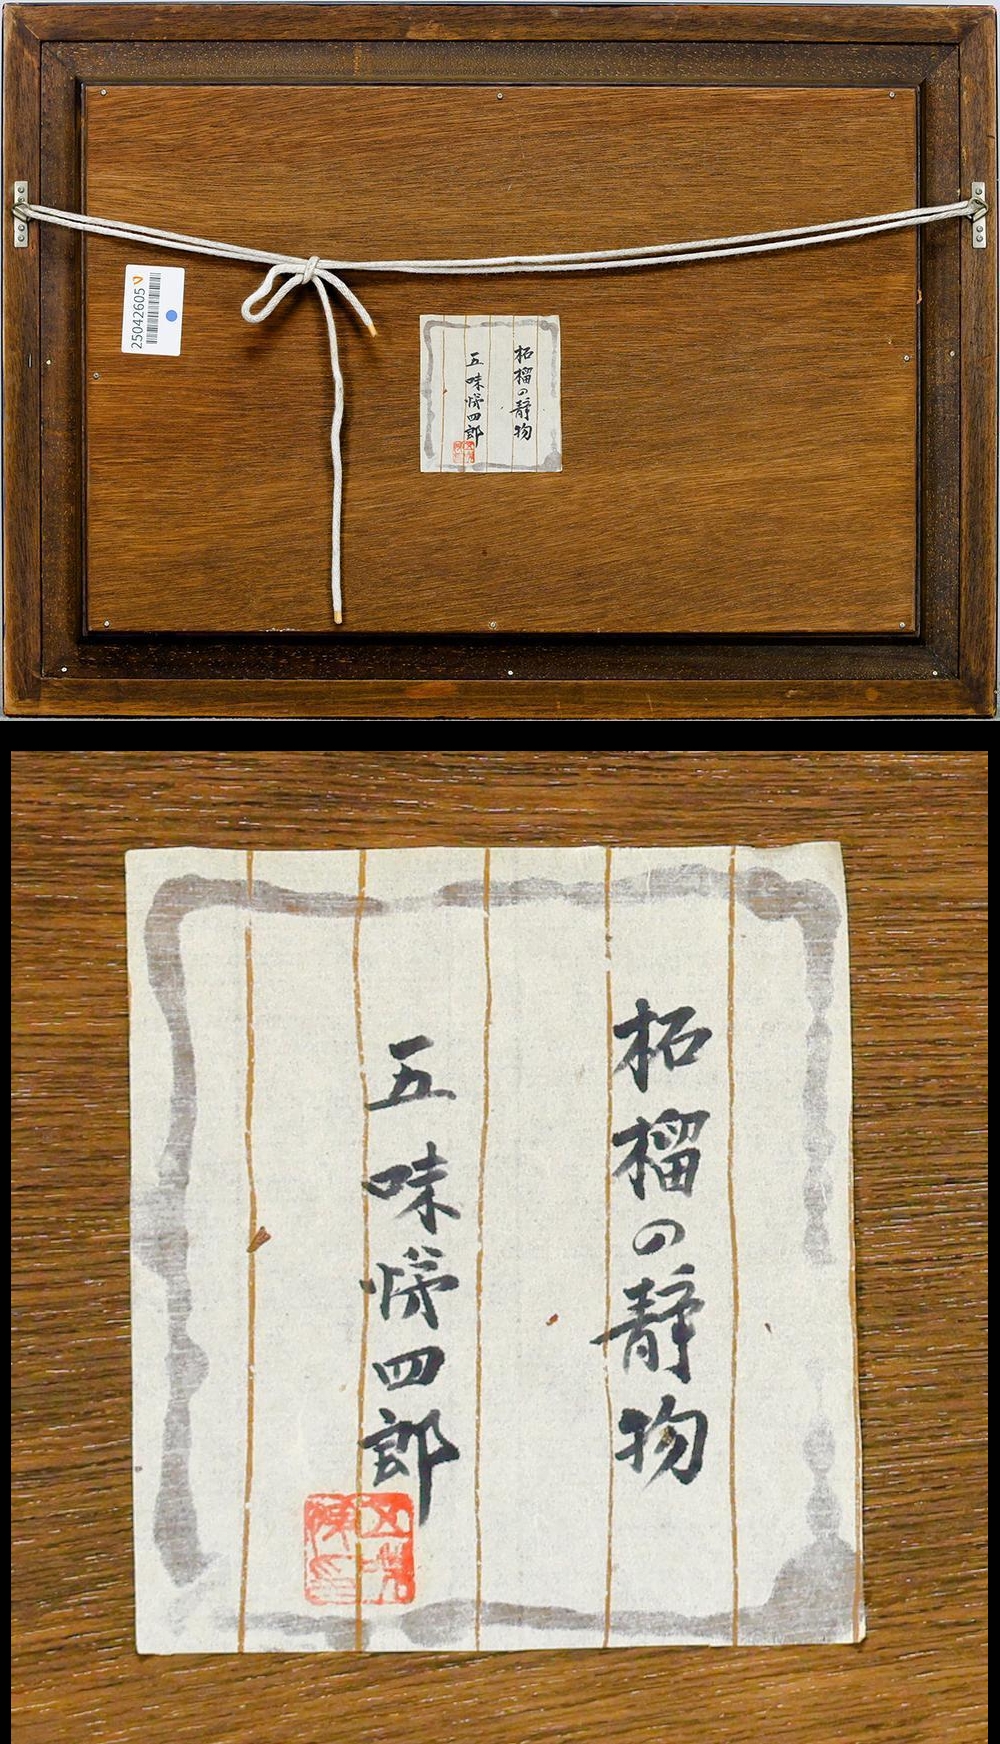 25042605
柘榴の静物
五味悌四郎
柘榴の静物
五味悌四郎